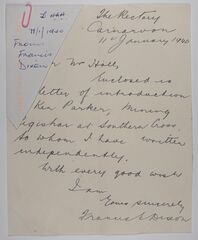 The Rectory
Carnarvon
11th January 1940
11/1/1940
From
Francis
Dixon
Mr Holly
Enclosed is
letter of introduction
Ken Parker, Mining
Registrar at Southern Cross,
to whom I have written
independently.
With every good wish
I am
Yours sincerely
Francis E Dixon